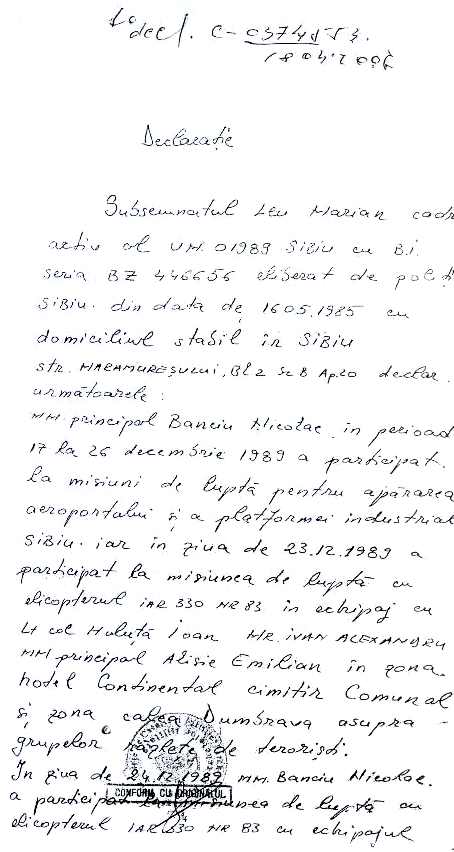 decl. C- 0374153.
18042002
Declarație
Subsemnatul Leu Marian cadr
activ al UM. 01989 SIBIU cu B.I.
seria BZ 446656 eliberat de poliț
SIBIU. din data de 16.05.1985 cu
domiciliul stabil în SIBIU
str. MARAMUREȘULUI, Bl 2 Sc B Ap.20 declar.
următoarele:
MM. principal Banciu Nicolae în perioad
17 la 26 decembrie 1989 a participat.
la misiuni de luptă pentru apărarea
aeroportului și a platformei industrial
SIBIU. iar în ziua de 23.12.1989 a
participat la misiunea de luptă cu
elicopterul IAR 330 NR 83 în echipaj cu
Lt col Huluță Ioan MR. IVAN ALEXANDRU
MM principal Alisie Emilian în zona
hotel Continental cimitir Comunal
și zona calea Dumbrava asupra
grupelor răzlețe de teroriști.
În ziua de 24.12.1989 MM. Banciu Nicolae.
CONFORM CU ORIGINALUL
a participat la misiunea de luptă cu
elicopterul IAR 330 NR 83 cu echipajul